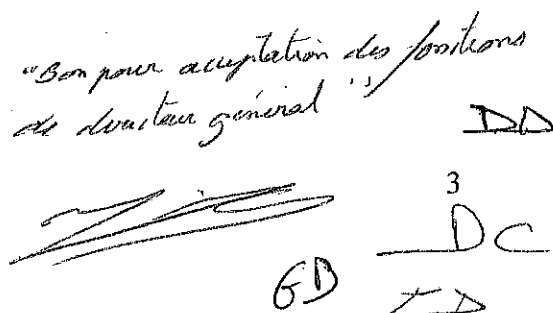 "Bon pour acceptation des fonctions
de directeur général"
DD
3
DC
GB